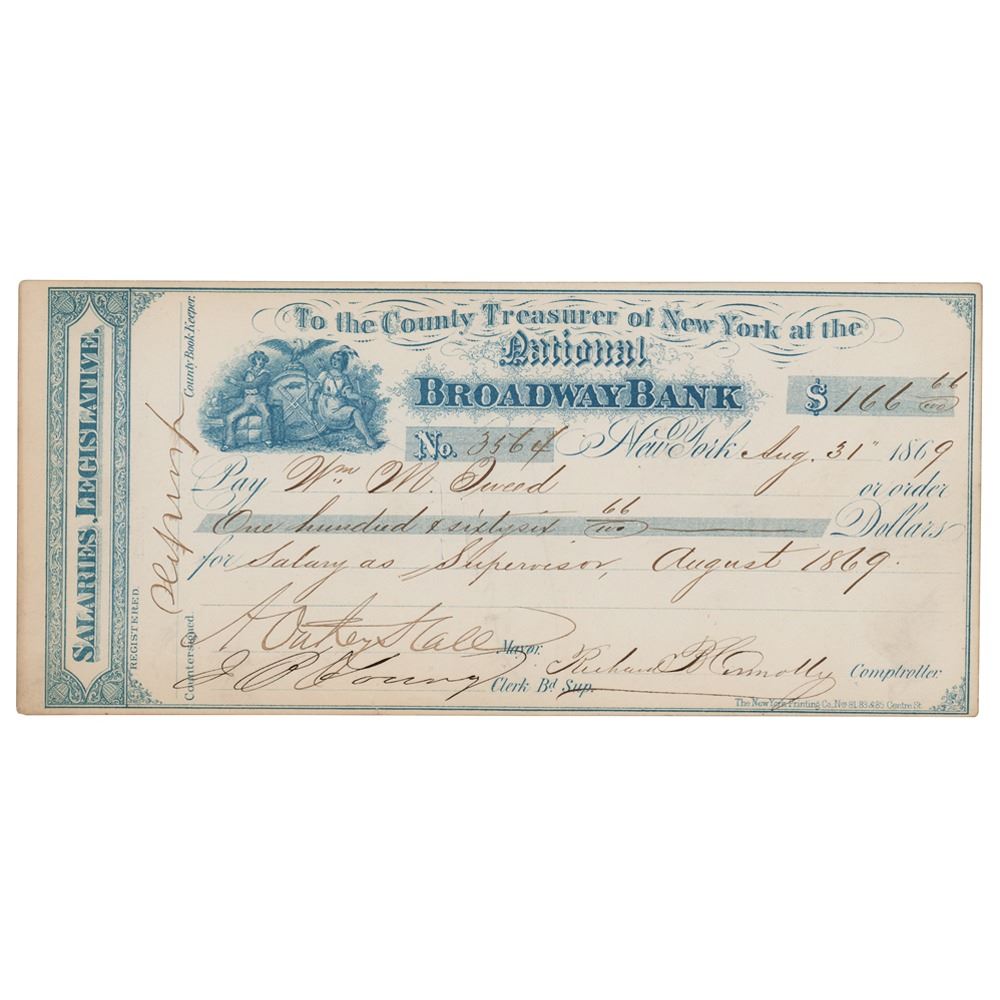 SALARIES, LEGISLATIVE.
REGISTERED
County Book Keeper.
Countersigned.
To the County Treasurer of New York at the
National
BROADWAY BANK
$ 166 66/100
No. 3564 New York Aug. 31" 1869
Pay Wm M. Tweed or order
One hundred & sixty six 66/100 Dollars
for Salary as Supervisor, August 1869.
A Oakey Hall Mayor.
J B Young Clerk Bd Sup.
Richard B Connolly Comptroller
The New York Printing Co. Nos 81, 83 & 85 Centre St.